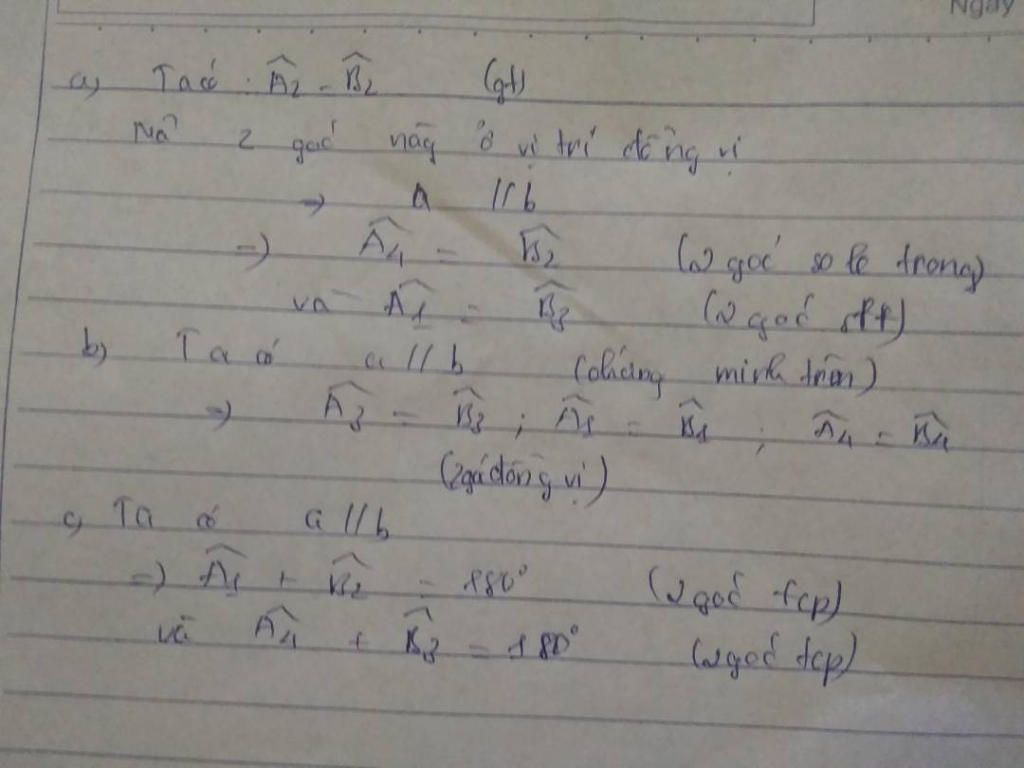 Ngày
a) Ta có : Â2 = B̂2 (gt)
Mà 2 góc này ở vị trí đồng vị
→ a // b
=> Â4 = B̂2 (2 góc so le trong)
và Â1 = B̂3 (2 góc slt)
b) Ta có a // b (chứng minh trên)
=> Â3 = B̂3 ; Â1 = B̂1 ; Â4 = B̂4
(2 góc đồng vị)
c) Ta có a // b
=> Â1 + B̂2 = 180° (2 góc tcp)
và Â4 + B̂3 = 180° (2 góc tcp)